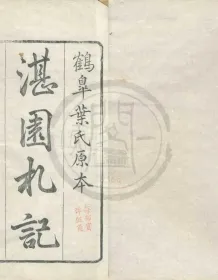 鶴皐葉氏原本
湛園札記